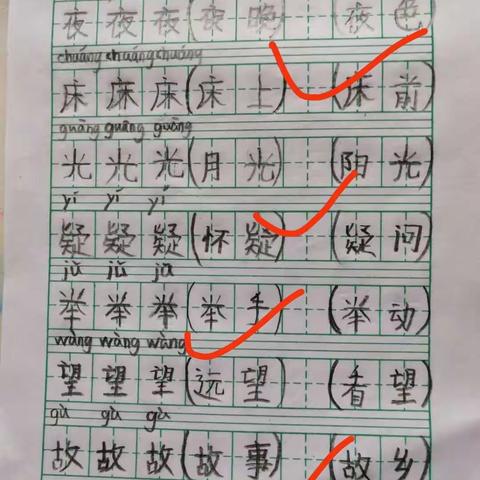 夜 夜 夜 (夜 晚) (夜 色)
chuáng chuáng chuáng
床 床 床 (床 上) (床 前)
guāng guāng guāng
光 光 光 (月 光) (阳 光)
yí yí yí
疑 疑 疑 (怀 疑) (疑 问)
jǔ jǔ jǔ
举 举 举 (举 手) (举 动)
wàng wàng wàng
望 望 望 (远 望) (看 望)
gù gù gù
故 故 故 (故 事) (故 乡)